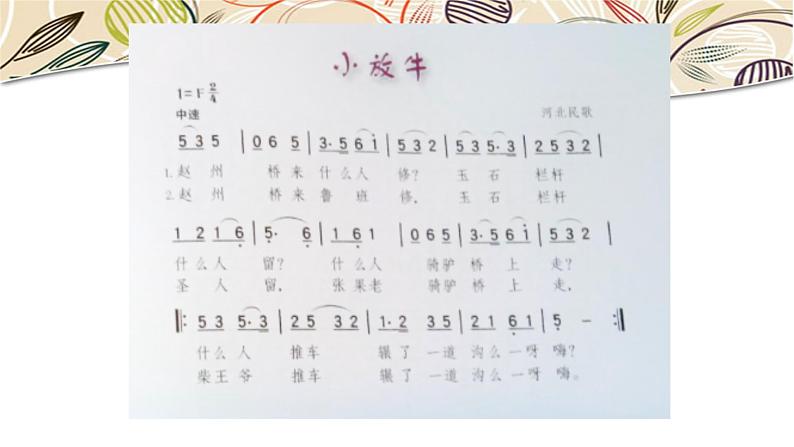 小放牛
1=F 2/4
中速
河北民歌
5 3 5 | 0 6 5 | 3· 5 6 i | 5 3 2 | 5 3 5· 3 | 2 5 3 2 |
1. 赵 州 桥 来 什 么 人 修？ 玉 石 栏杆
2. 赵 州 桥 来 鲁 班 修， 玉 石 栏杆
1 2 1 6 | 5· 6 | 1 6 1 | 0 6 5 | 3· 5 6 i | 5 3 2 |
什 么 人 留？ 什 么 人 骑驴 桥 上 走？
圣 人 留， 张 果 老 骑驴 桥 上 走，
‖: 5 3 5· 3 | 2 5 3 2 | 1· 2 3 5 | 2 1 6 1 | 5 － :‖
什 么 人 推车 辗 了 一 道 沟 么 一 呀 嗨？
柴 王 爷 推车 辗 了 一 道 沟 么 一 呀 嗨。